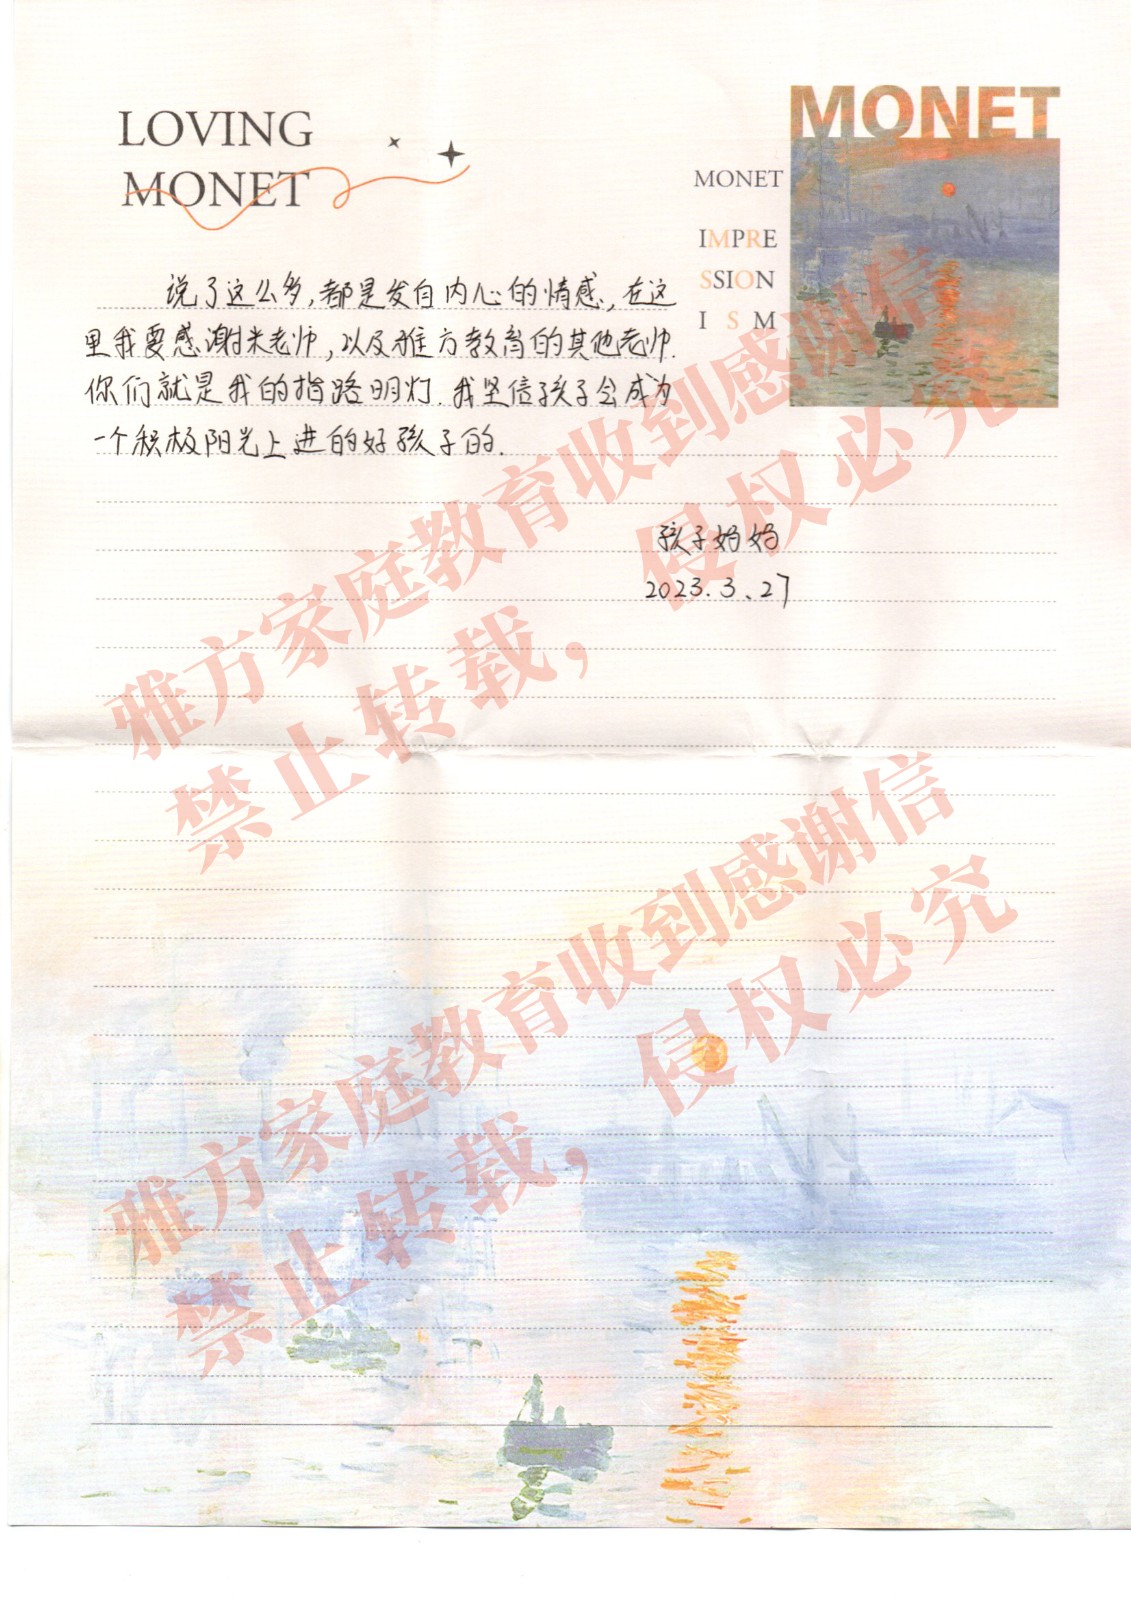 LOVING
MONET
MONET
MONET
IMPRE
SSION
I S M
说了这么多,都是发自内心的情感,在这
里我要感谢米老师,以及雅方教育的其他老师.
你们就是我的指路明灯.我坚信孩子会成为
一个积极阳光上进的好孩子的.
孩子妈妈
2023.3.27
雅方家庭教育收到感谢信
禁止转载,侵权必究
雅方家庭教育收到感谢信
禁止转载,侵权必究